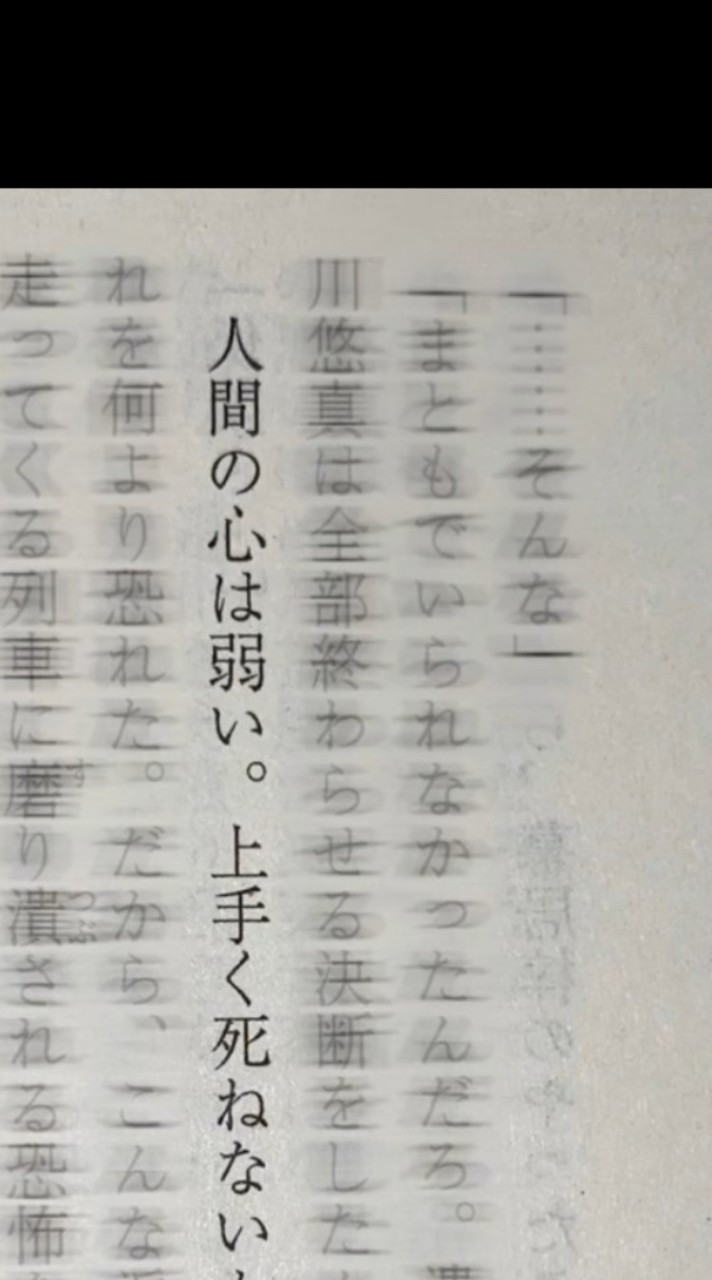 「……そんな」
「まともでいられなかったんだろ。
川悠真は全部終わらせる決断をした
人間の心は弱い。上手く死ねない
れを何より恐れた。だから、こんな
走ってくる列車に磨り潰される恐怖